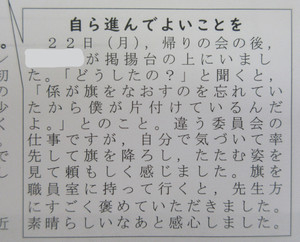 自ら進んでよいことを
２２日（月），帰りの会の後，
が掲揚台の上にいまし
た。「どうしたの？」と聞くと，
「係が旗をなおすのを忘れてい
たから僕が片付けているんだ
よ。」とのこと。違う委員会の
仕事ですが，自分で気づいて率
先して旗を降ろし，たたむ姿を
見て頼もしく感じました。旗を
職員室に持って行くと，先生方
にすごく褒めていただきました。
素晴らしいなあと感心しました。
近